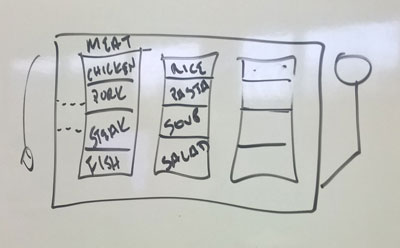 MEAT
CHICKEN
PORK
STEAK
FISH
RICE
PASTA
SOUP
SALAD